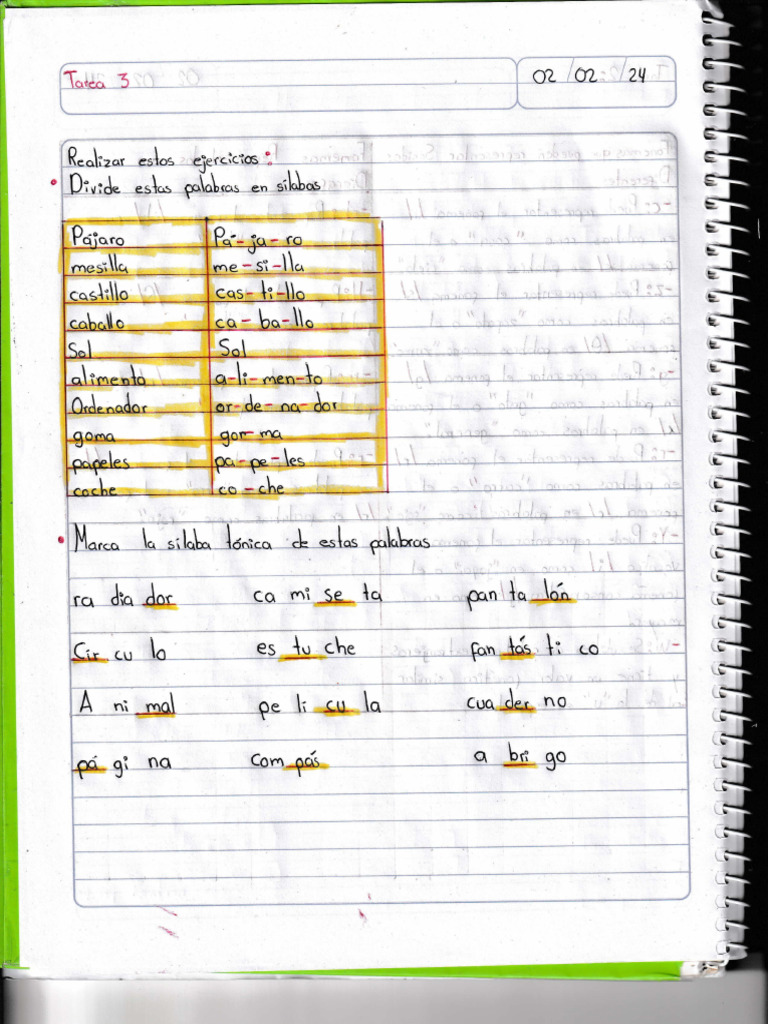 Tarea 3
02/02/24
Realizar estos ejercicios:
• Divide estas palabras en silabas
Pájaro Pá-ja-ro
mesilla me-si-lla
castillo cas-ti-llo
caballo ca-ba-llo
Sol Sol
alimento a-li-men-to
Ordenador or-de-na-dor
goma gor-ma
papeles pa-pe-les
coche co-che
• Marca la silaba tónica de estas palabras
ra dia dor ca mi se ta pan ta lón
Cir cu lo es tu che fan tás ti co
A ni mal pe li cu la cua der no
pá gi na com pás a bri go